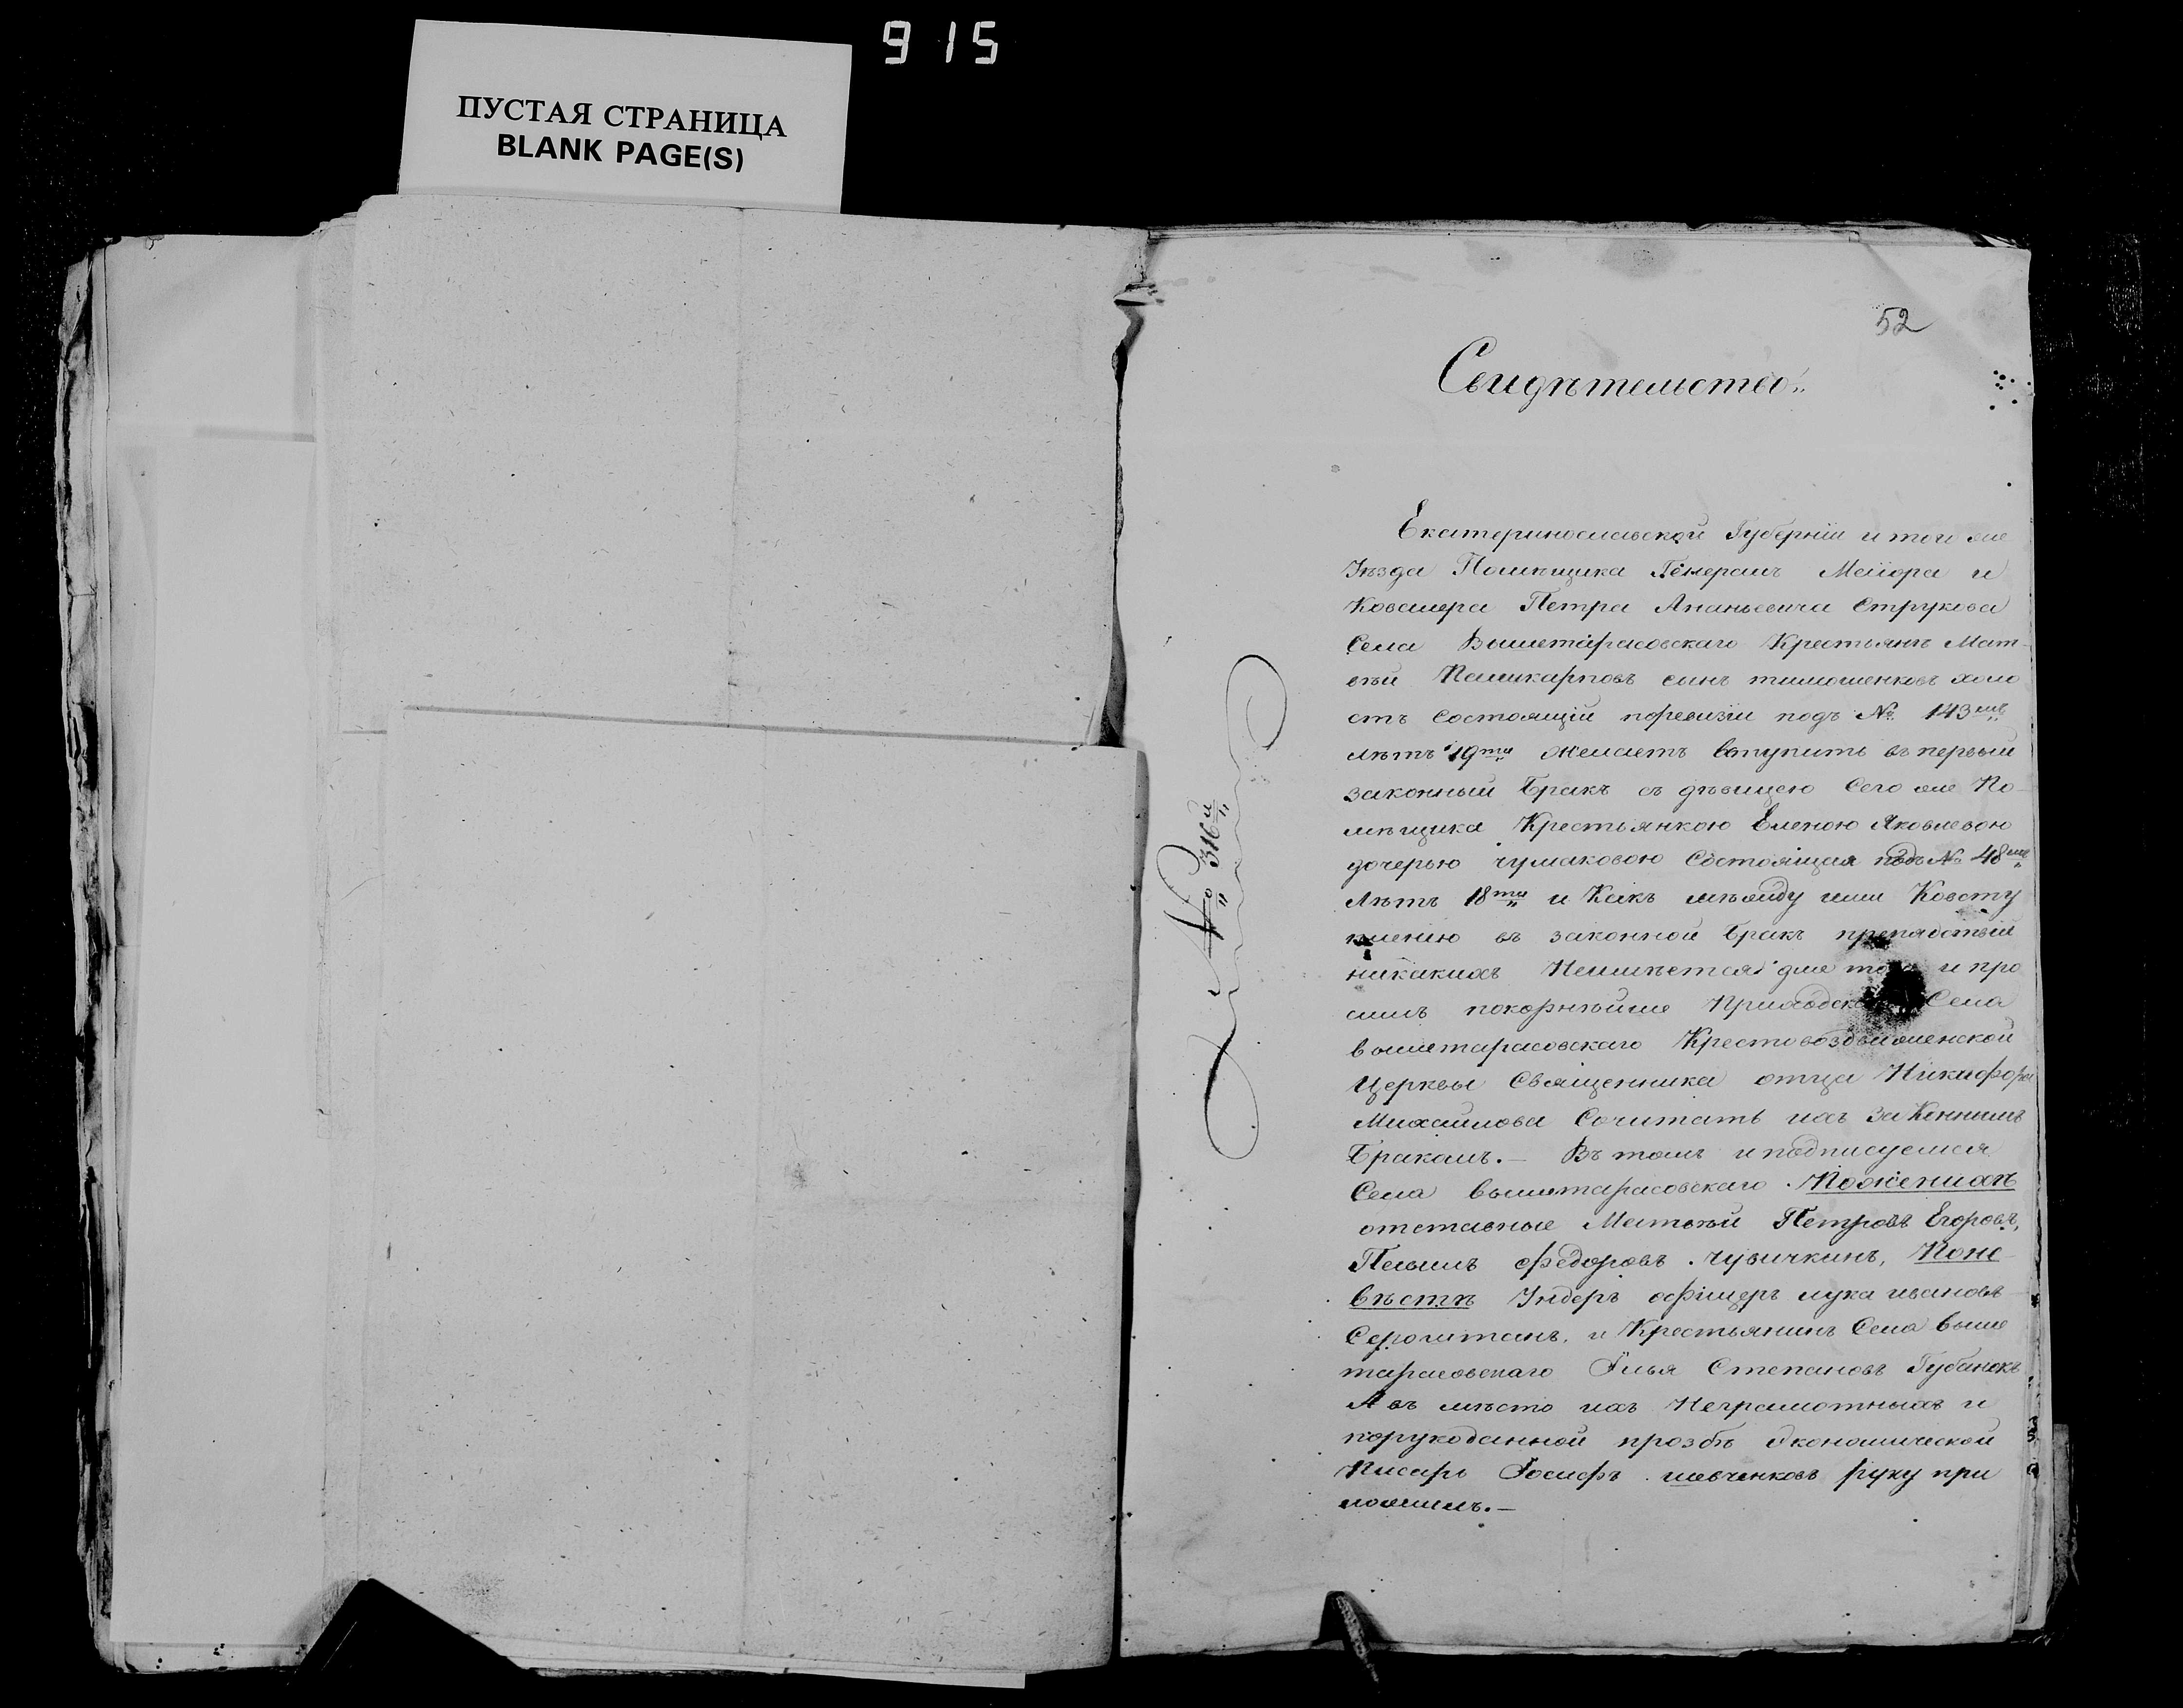 915
ПУСТАЯ СТРАНИЦА
BLANK PAGE(S)
52
Свидѣтельство
№ 316й
Екатеринославской Губерніи и той же
Уѣзда Помѣщика Генералъ Маіора и
Кавалера Петра Ананьевича Струкова
Села Вышетарасовскаго Крестьянъ Мат-
вѣй Поликарповъ сынъ тимошенковъ холо
стъ состоящій поревизіи подъ № 143мъ
лѣтъ 19ти желаетъ вступить въ первый
законный Бракъ съ дѣвицею сего же По-
мѣщика Крестьянкою Еленою Яковлевою
дочерью чумаковою состоящая подъ № 48мъ
лѣтъ 18ти и Какъ между ими Ковсту
плению въ законной бракъ препядствій
никакихъ Неимѣется для того и про
симъ покорнѣйше Приходскаго Села
вышетарасовскаго Крестовоздвиженской
Церквы Священника отца Никифора
Михаилова Сочитать ихъ законнымъ
Бракомъ.— Въ томъ и подписуемся
Села вышетарасовскаго. Поженихѣ
отставные Матвѣй Петровъ Егоровъ,
Павилъ федоровъ. чувичкинъ, Поне-
вѣстѣ Ундеръ офицеръ лука ивановъ
и Крестьянинъ Села выше
тарасовскаго Илья Степановъ
А въ мѣсто ихъ Неграмотныхъ и
порукоданной прозбѣ Экономической
Писарь Іосифъ шевченковъ руку при
ложилъ.—